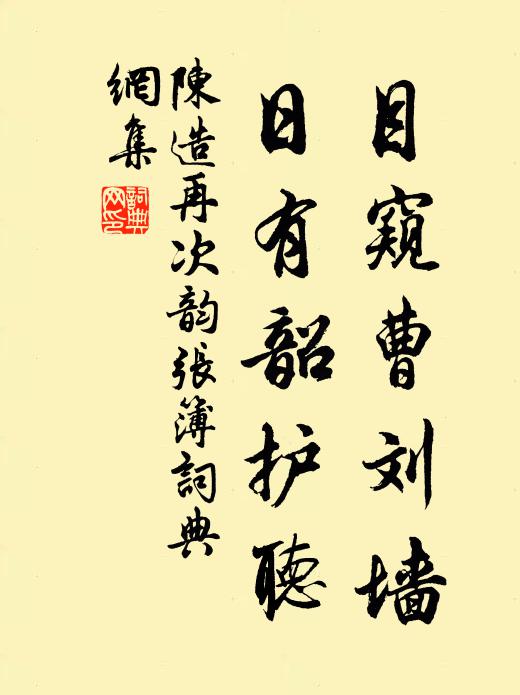 目窥曹刘墙
日有韶护聽
陳造再次韵張簿詞典
網集
詞典网印